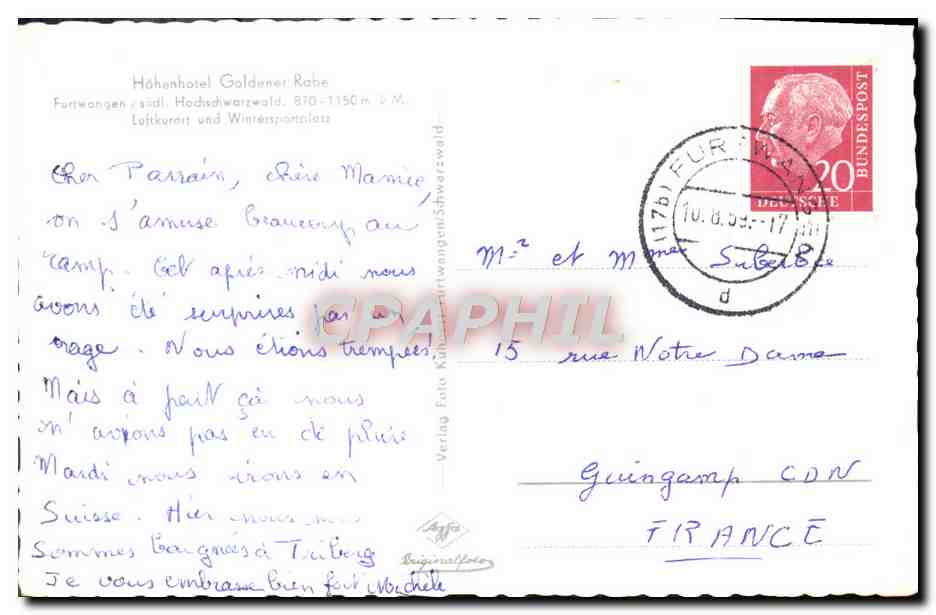 Höhenhotel Goldener Rabe
Furtwangen / südl. Hochschwarzwald. 870-1150 m ü. M.
Luftkurort und Wintersportplatz
Cher Parrain, chère Mamie,
on s'amuse beaucoup au
camp. Cet après midi nous
avons été surprises par un
orage. Nous étions trempées.
Mais à part ça nous
n'avions pas eu de pluie
Mardi nous irons en
Suisse. Hier nous nous
sommes baignées à Triberg
Je vous embrasse bien fort Michèle
Verlag Foto Kuhnert Furtwangen/Schwarzwald
Agfa
Originalfoto
20
DEUTSCHE
BUNDESPOST
(17b) FURTWANGEN
10.8.59.-17
d
Mr et Mme
15 rue Notre Dame
Guingamp CDN
FRANCE
CPAPHIL